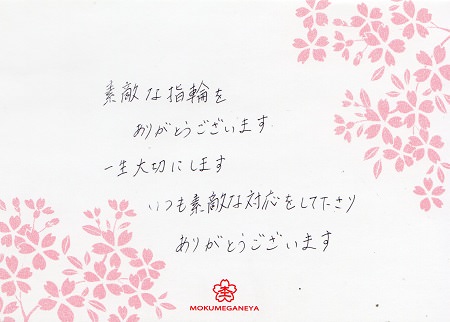 素敵な指輪を
ありがとうございます
一生大切にします
いつも素敵な対応をして下さり
ありがとうございます
MOKUMEGANEYA